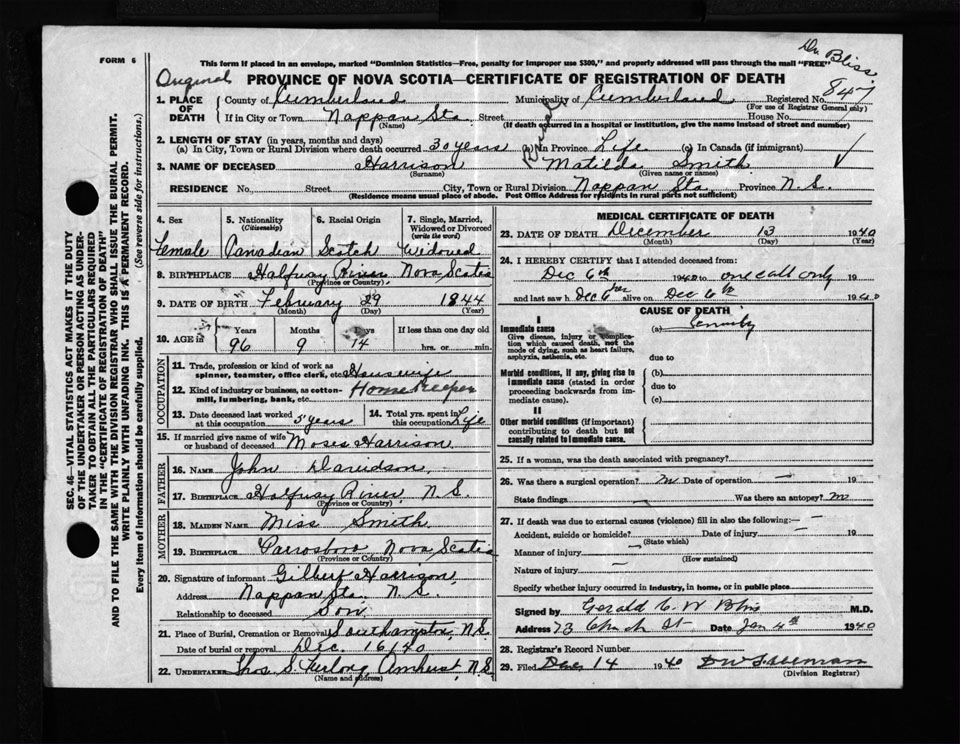 FORM 6
Dr. Bliss
This form if placed in an envelope, marked "Dominion Statistics—Free, penalty for improper use $300," and properly addressed will pass through the mail "FREE"
Original
PROVINCE OF NOVA SCOTIA—CERTIFICATE OF REGISTRATION OF DEATH
847
1. PLACE OF DEATH County of Cumberland Municipality of Cumberland Registered No.
(For use of Registrar General only)
If in City or Town Nappan Sta. Street House No.
(Name) (If death occurred in a hospital or institution, give the name instead of street and number)
2. LENGTH OF STAY (in years, months and days)
(a) In City, Town or Rural Division where death occurred 30 years Rural (b) In Province Life (c) In Canada (if immigrant)
3. NAME OF DECEASED Harrison Matilda Smith
(Surname) (Given name or names)
RESIDENCE No. Street City, Town or Rural Division Nappan Sta Province N.S.
(Residence means usual place of abode. Post Office Address for residents in rural parts not sufficient)
4. Sex 5. Nationality (Citizenship) 6. Racial Origin 7. Single, Married, Widowed or Divorced (write the word)
Female Canadian Scotch Widowed
8. BIRTHPLACE Halfway River Nova Scotia
(Province or Country)
9. DATE OF BIRTH February 29 1844
(Month) (Day) (Year)
10. AGE in Years Months Days If less than one day old
96 9 14 hrs. or min.
OCCUPATION
11. Trade, profession or kind of work as spinner, teamster, office clerk, etc. Housewife
12. Kind of industry or business, as cotton-mill, lumbering, bank, etc. Homekeeper
13. Date deceased last worked at this occupation 5 years 14. Total yrs. spent in this occupation Life
15. If married give name of wife or husband of deceased Moses Harrison
FATHER
16. NAME John Davidson
17. BIRTHPLACE Halfway River, N.S.
MOTHER
18. MAIDEN NAME Miss Smith
19. BIRTHPLACE Parrsboro Nova Scotia
(Province or Country)
20. Signature of informant Gilbert Harrison,
Address Nappan Sta. N.S.
Relationship to deceased Son
21. Place of Burial, Cremation or Removal Southampton, N.S.
Date of burial or removal Dec. 16/40
22. UNDERTAKER Thos S. Furlong Amherst, N.S.
(Name and address)
MEDICAL CERTIFICATE OF DEATH
23. DATE OF DEATH December 13 1940
(Month) (Day) (Year)
24. I HEREBY CERTIFY that I attended deceased from:
Dec 6th 1940 to one call only 19
and last saw h alive on Dec 6th 1940
CAUSE OF DEATH
I
Immediate cause (a) Senility
Give disease, injury or complication which caused death, not the mode of dying, such as heart failure, asphyxia, asthenia, etc.
due to
Morbid conditions, if any, giving rise to immediate cause (stated in order proceeding backwards from immediate cause).
(b)
due to
(c)
II
Other morbid conditions (if important) contributing to death but not causally related to immediate cause.
25. If a woman, was the death associated with pregnancy?
26. Was there a surgical operation? No Date of operation — 19
State findings — Was there an autopsy? No
27. If death was due to external causes (violence) fill in also the following:—
Accident, suicide or homicide? Date of injury — 19
(State which)
Manner of injury —
(How sustained)
Nature of injury —
Specify whether injury occurred in industry, in home, or in public place
Signed by Gerald C. W Bliss M.D.
Address 73 Church St Date Jan 4th 1940
28. Registrar's Record Number
29. Filed Dec 14 1940
(Division Registrar)
SEC. 46—VITAL STATISTICS ACT MAKES IT THE DUTY
OF THE UNDERTAKER OR PERSON ACTING AS UNDER-
TAKER TO OBTAIN ALL THE PARTICULARS REQUIRED
IN THE "CERTIFICATE OF REGISTRATION OF DEATH"
AND TO FILE THE SAME WITH THE DIVISION REGISTRAR WHO SHALL ISSUE THE BURIAL PERMIT.
WRITE PLAINLY WITH UNFADING INK. THIS IS A PERMANENT RECORD.
Every item of information should be carefully supplied. (See reverse side for instructions.)